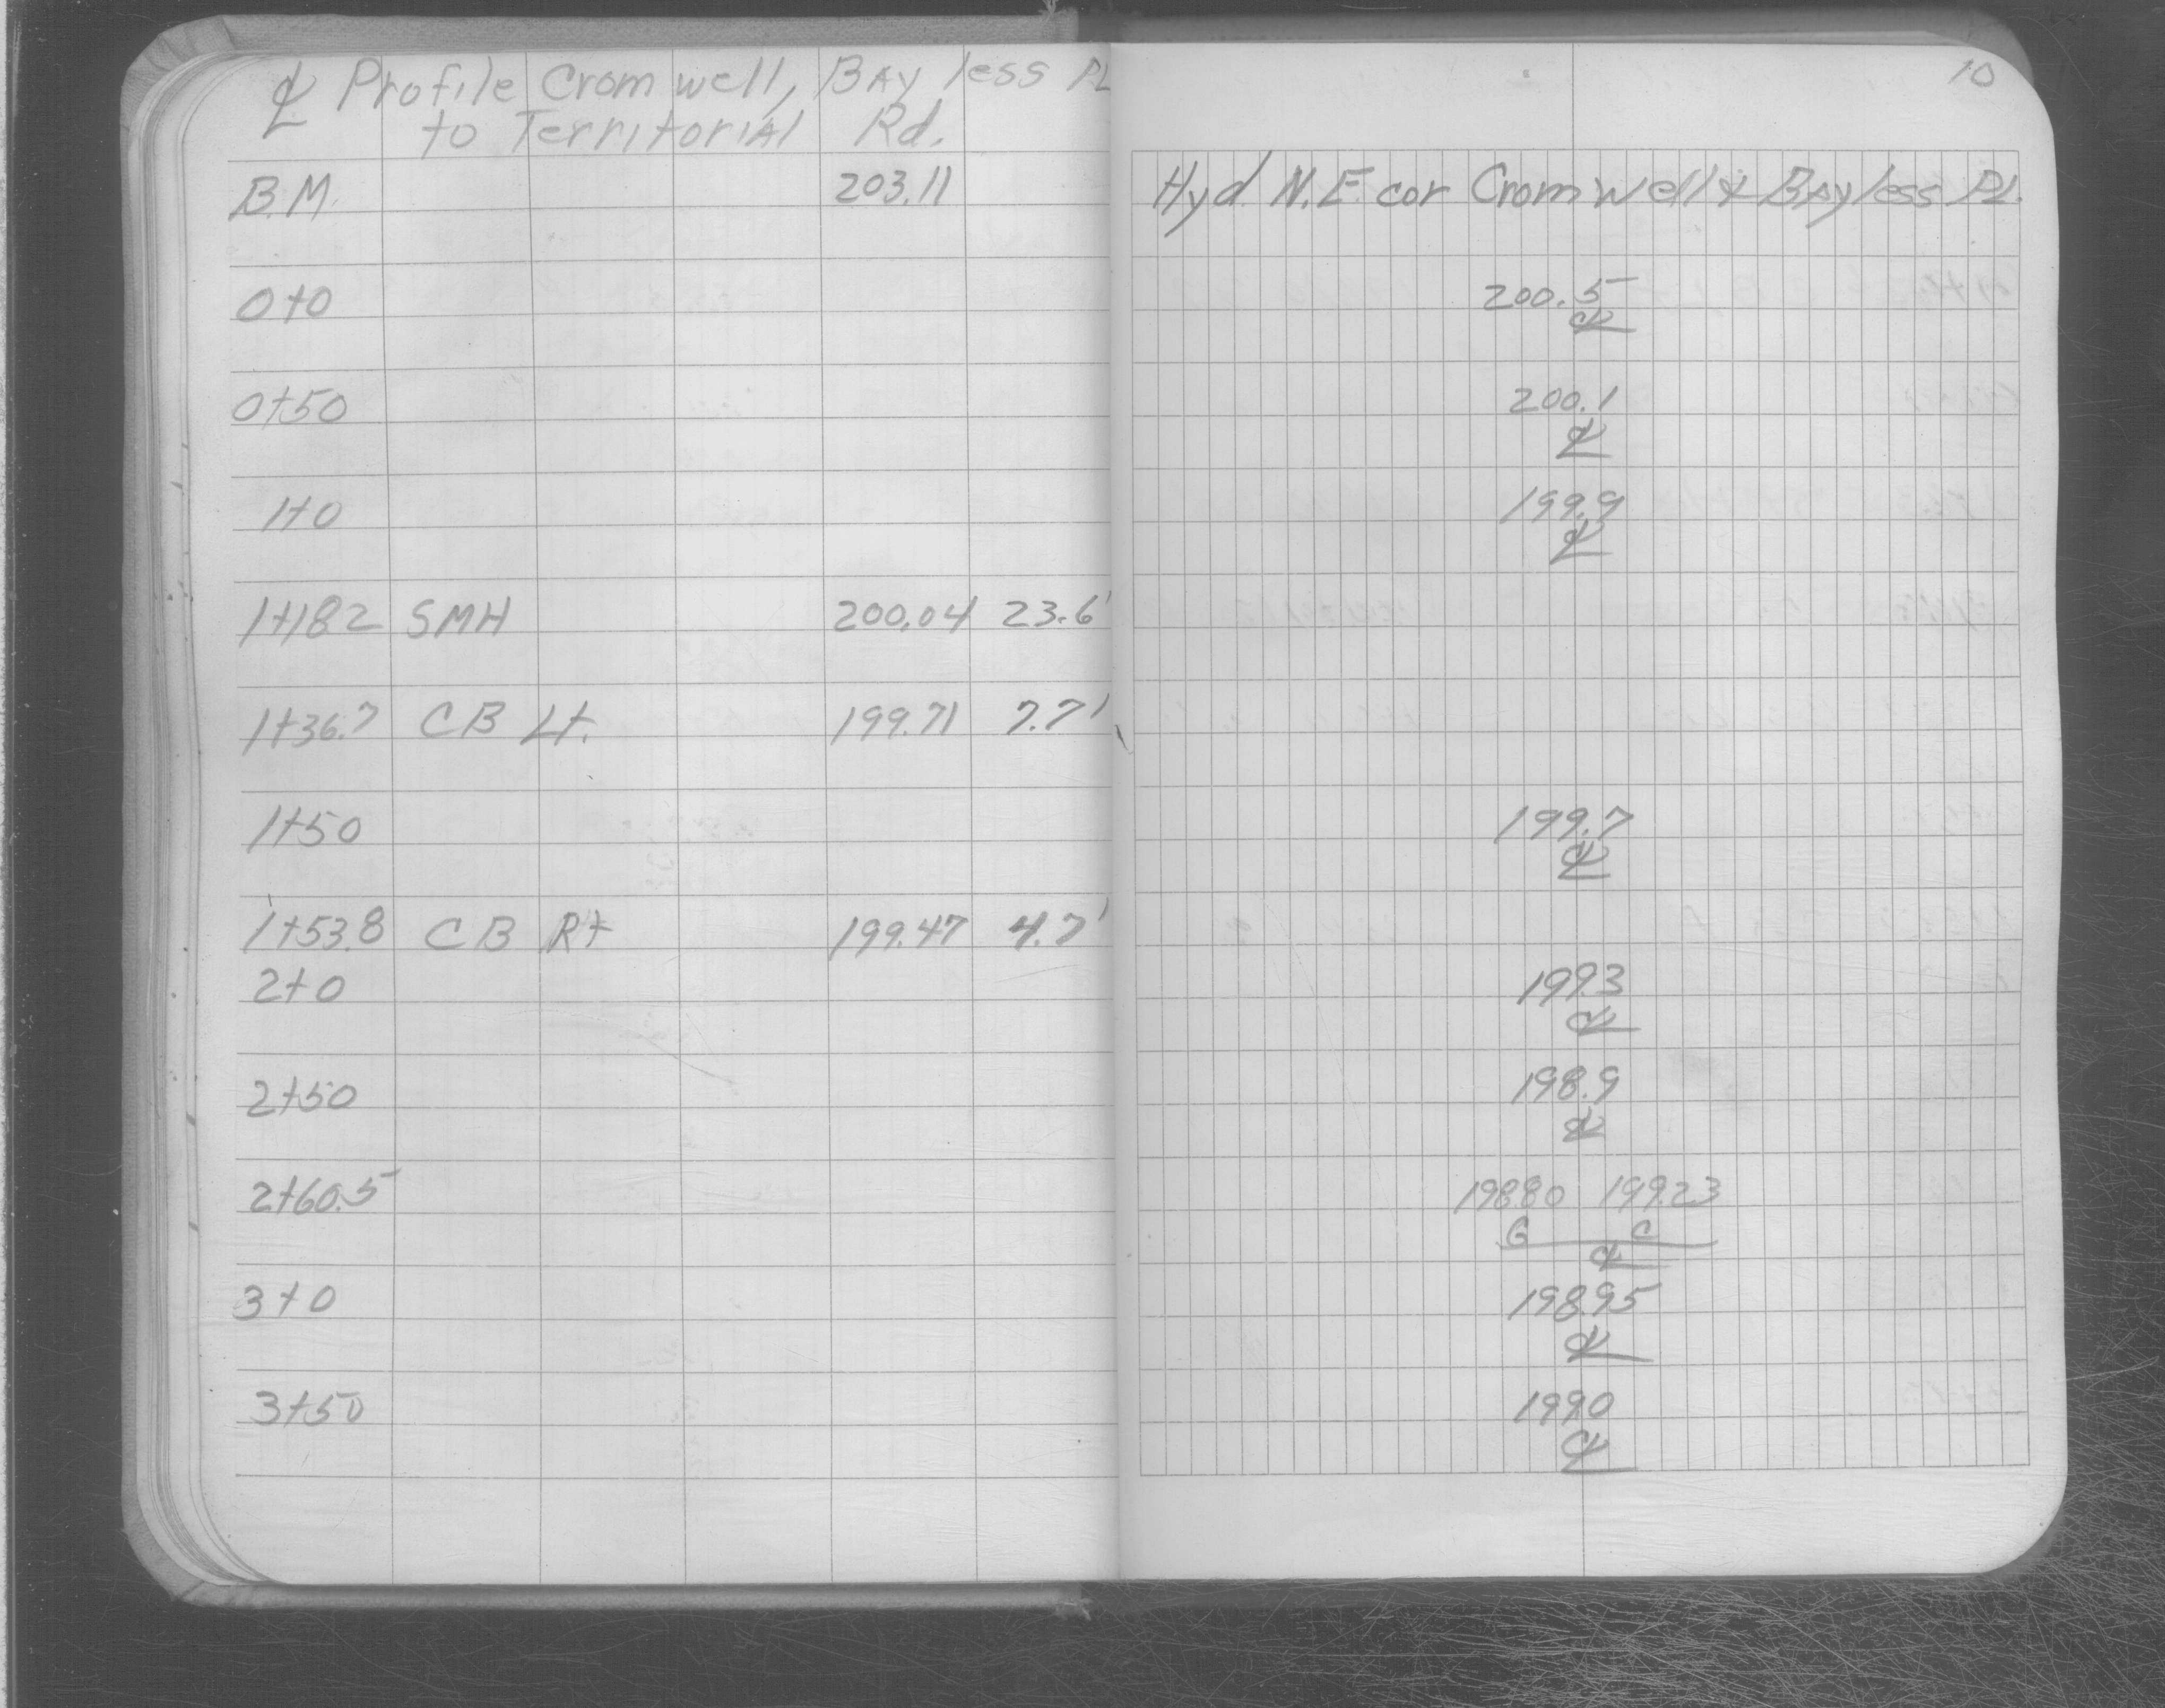 ℄ Profile Cromwell, Bayless PL
to Territorial Rd.
10
B.M. 203.11 Hyd N.E. cor Cromwell & Bayless PL.
0+0 200.5
℄
0+50 200.1
℄
1+0 199.9
℄
1+18.2 SMH 200.04 23.6'
1+36.7 CB Lt. 199.71 7.7'
1+50 199.7
℄
1+53.8 CB Rt 199.47 4.7'
2+0 199.3
℄
2+50 198.9
℄
2+60.5 198.80 199.23
G C
℄
3+0 198.95
℄
3+50 199.0
℄